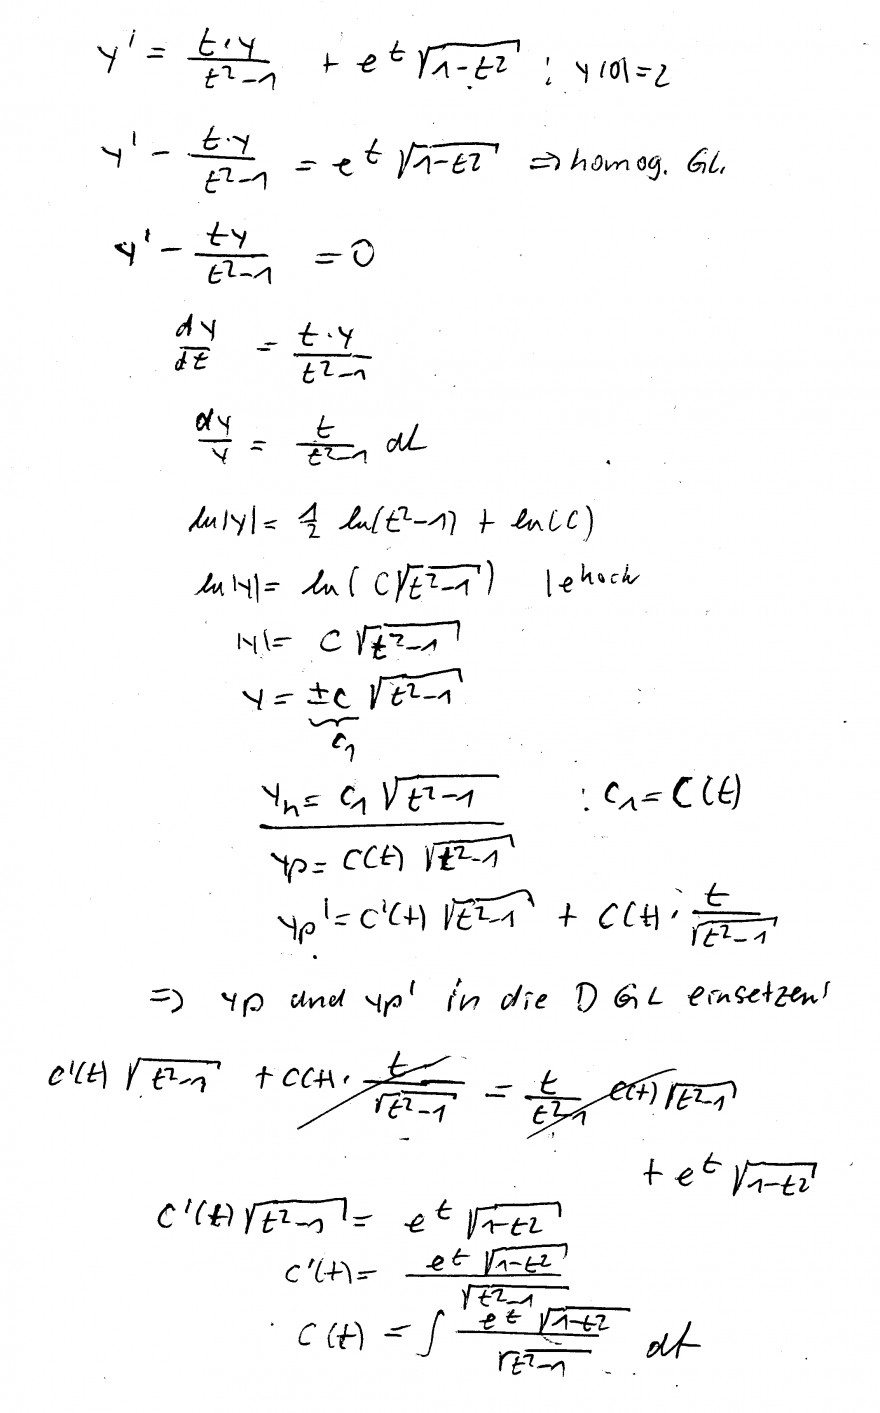 y' = t·y / t²-1 + e^t √(1-t²) ; y(0)=2
y' - t·y / t²-1 = e^t √(1-t²) ⇒ homog. Gl.
y' - ty / t²-1 = 0
dy/dt = t·y / t²-1
dy/y = t / t²-1 dt
ln|y| = 1/2 ln(t²-1) + ln(C)
ln|y| = ln( C√(t²-1) ) | e hoch
|y| = C √(t²-1)
y = ±C √(t²-1)
C₁
yh = C₁ √(t²-1) : C₁ = C(t)
yp = C(t) √(t²-1)
yp' = C'(t) √(t²-1) + C(t) · t / √(t²-1)
⇒ yp und yp' in die DGL einsetzen!
C'(t) √(t²-1) + C(t) · t / √(t²-1) = t / t²-1 C(t) √(t²-1)
+ e^t √(1-t²)
C'(t) √(t²-1) = e^t √(1-t²)
C'(t) = e^t √(1-t²) / √(t²-1)
C(t) = ∫ e^t √(1-t²) / √(t²-1) dt